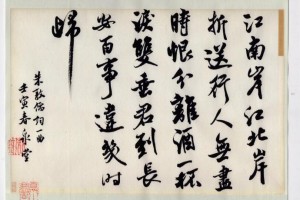 江南岸江北岸
折送行人無盡
時恨分離酒一杯
淚雙垂君到長
安百事違幾时
歸
朱敦儒詞一曲
壬寅春